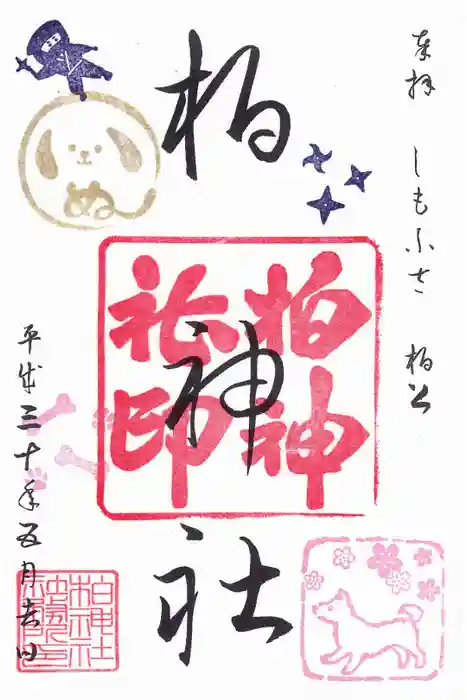 奉拝 しもふさ 柏
柏神社
柏神
社印
平成三十年五月吉日
柏神社
ぬ